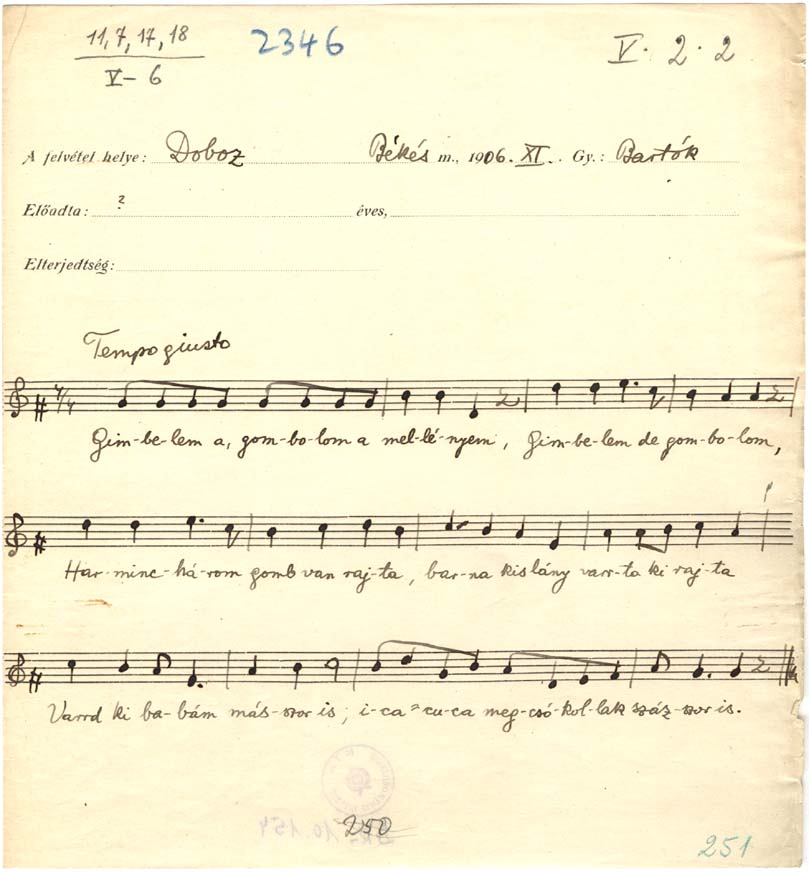 11, 7, 17, 18
V - 6
2346
V. 2. 2
A felvétel helye: Doboz Békés m., 1906. XI. Gy.: Bartók
Előadta: ? éves,
Elterjedtség:
Tempo giusto
Gim-be-lem a, gom-bo-lom a mel-lé-nyem, Gim-be-lem de gom-bo-lom,
Har-minc-há-rom gomb van raj-ta, bar-na kislány varr-ta ki raj-ta
Varrd ki ba-bám más-szor is; i-ca-cu-ca meg-csó-kol-lak száz-szor is.
250
251